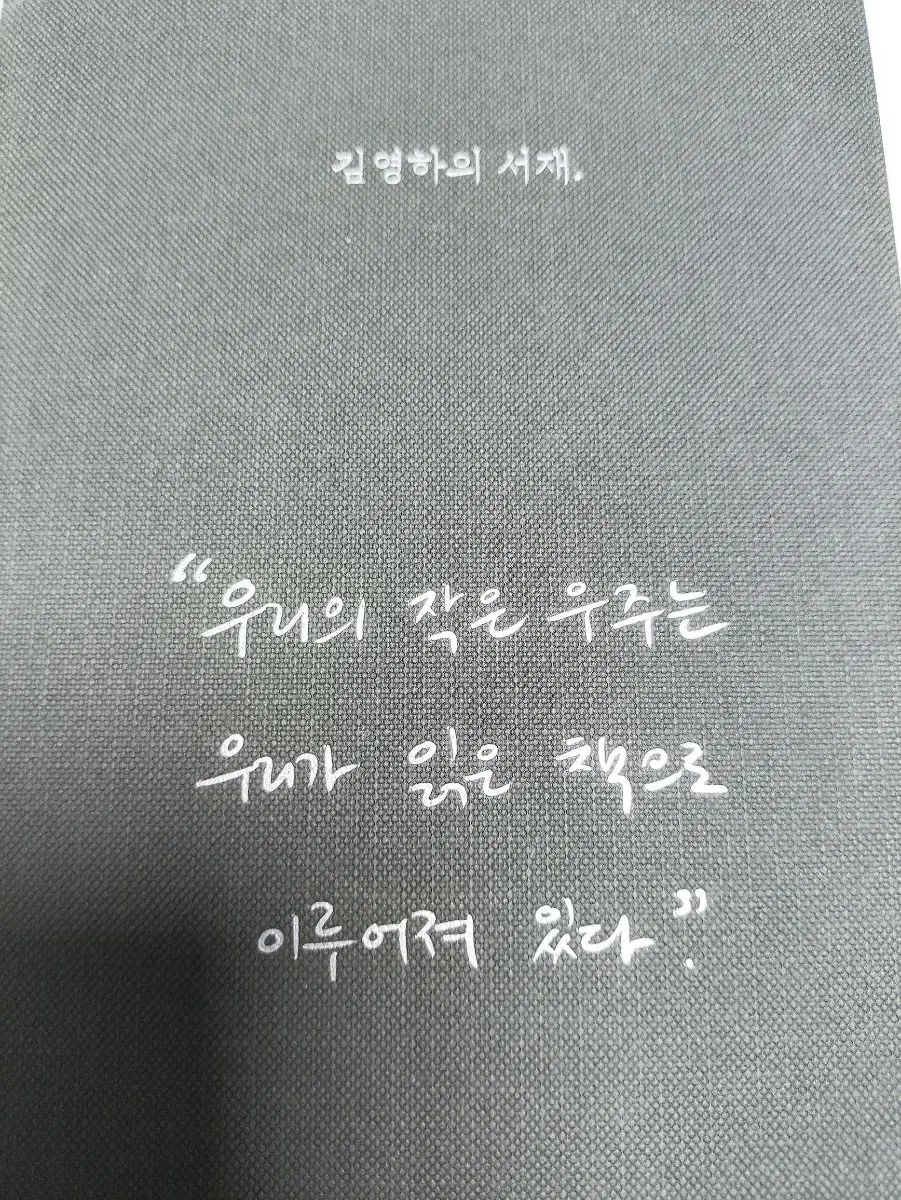 김영하의 서재.
“우리의 작은 우주는
우리가 읽은 책으로
이루어져 있다”.